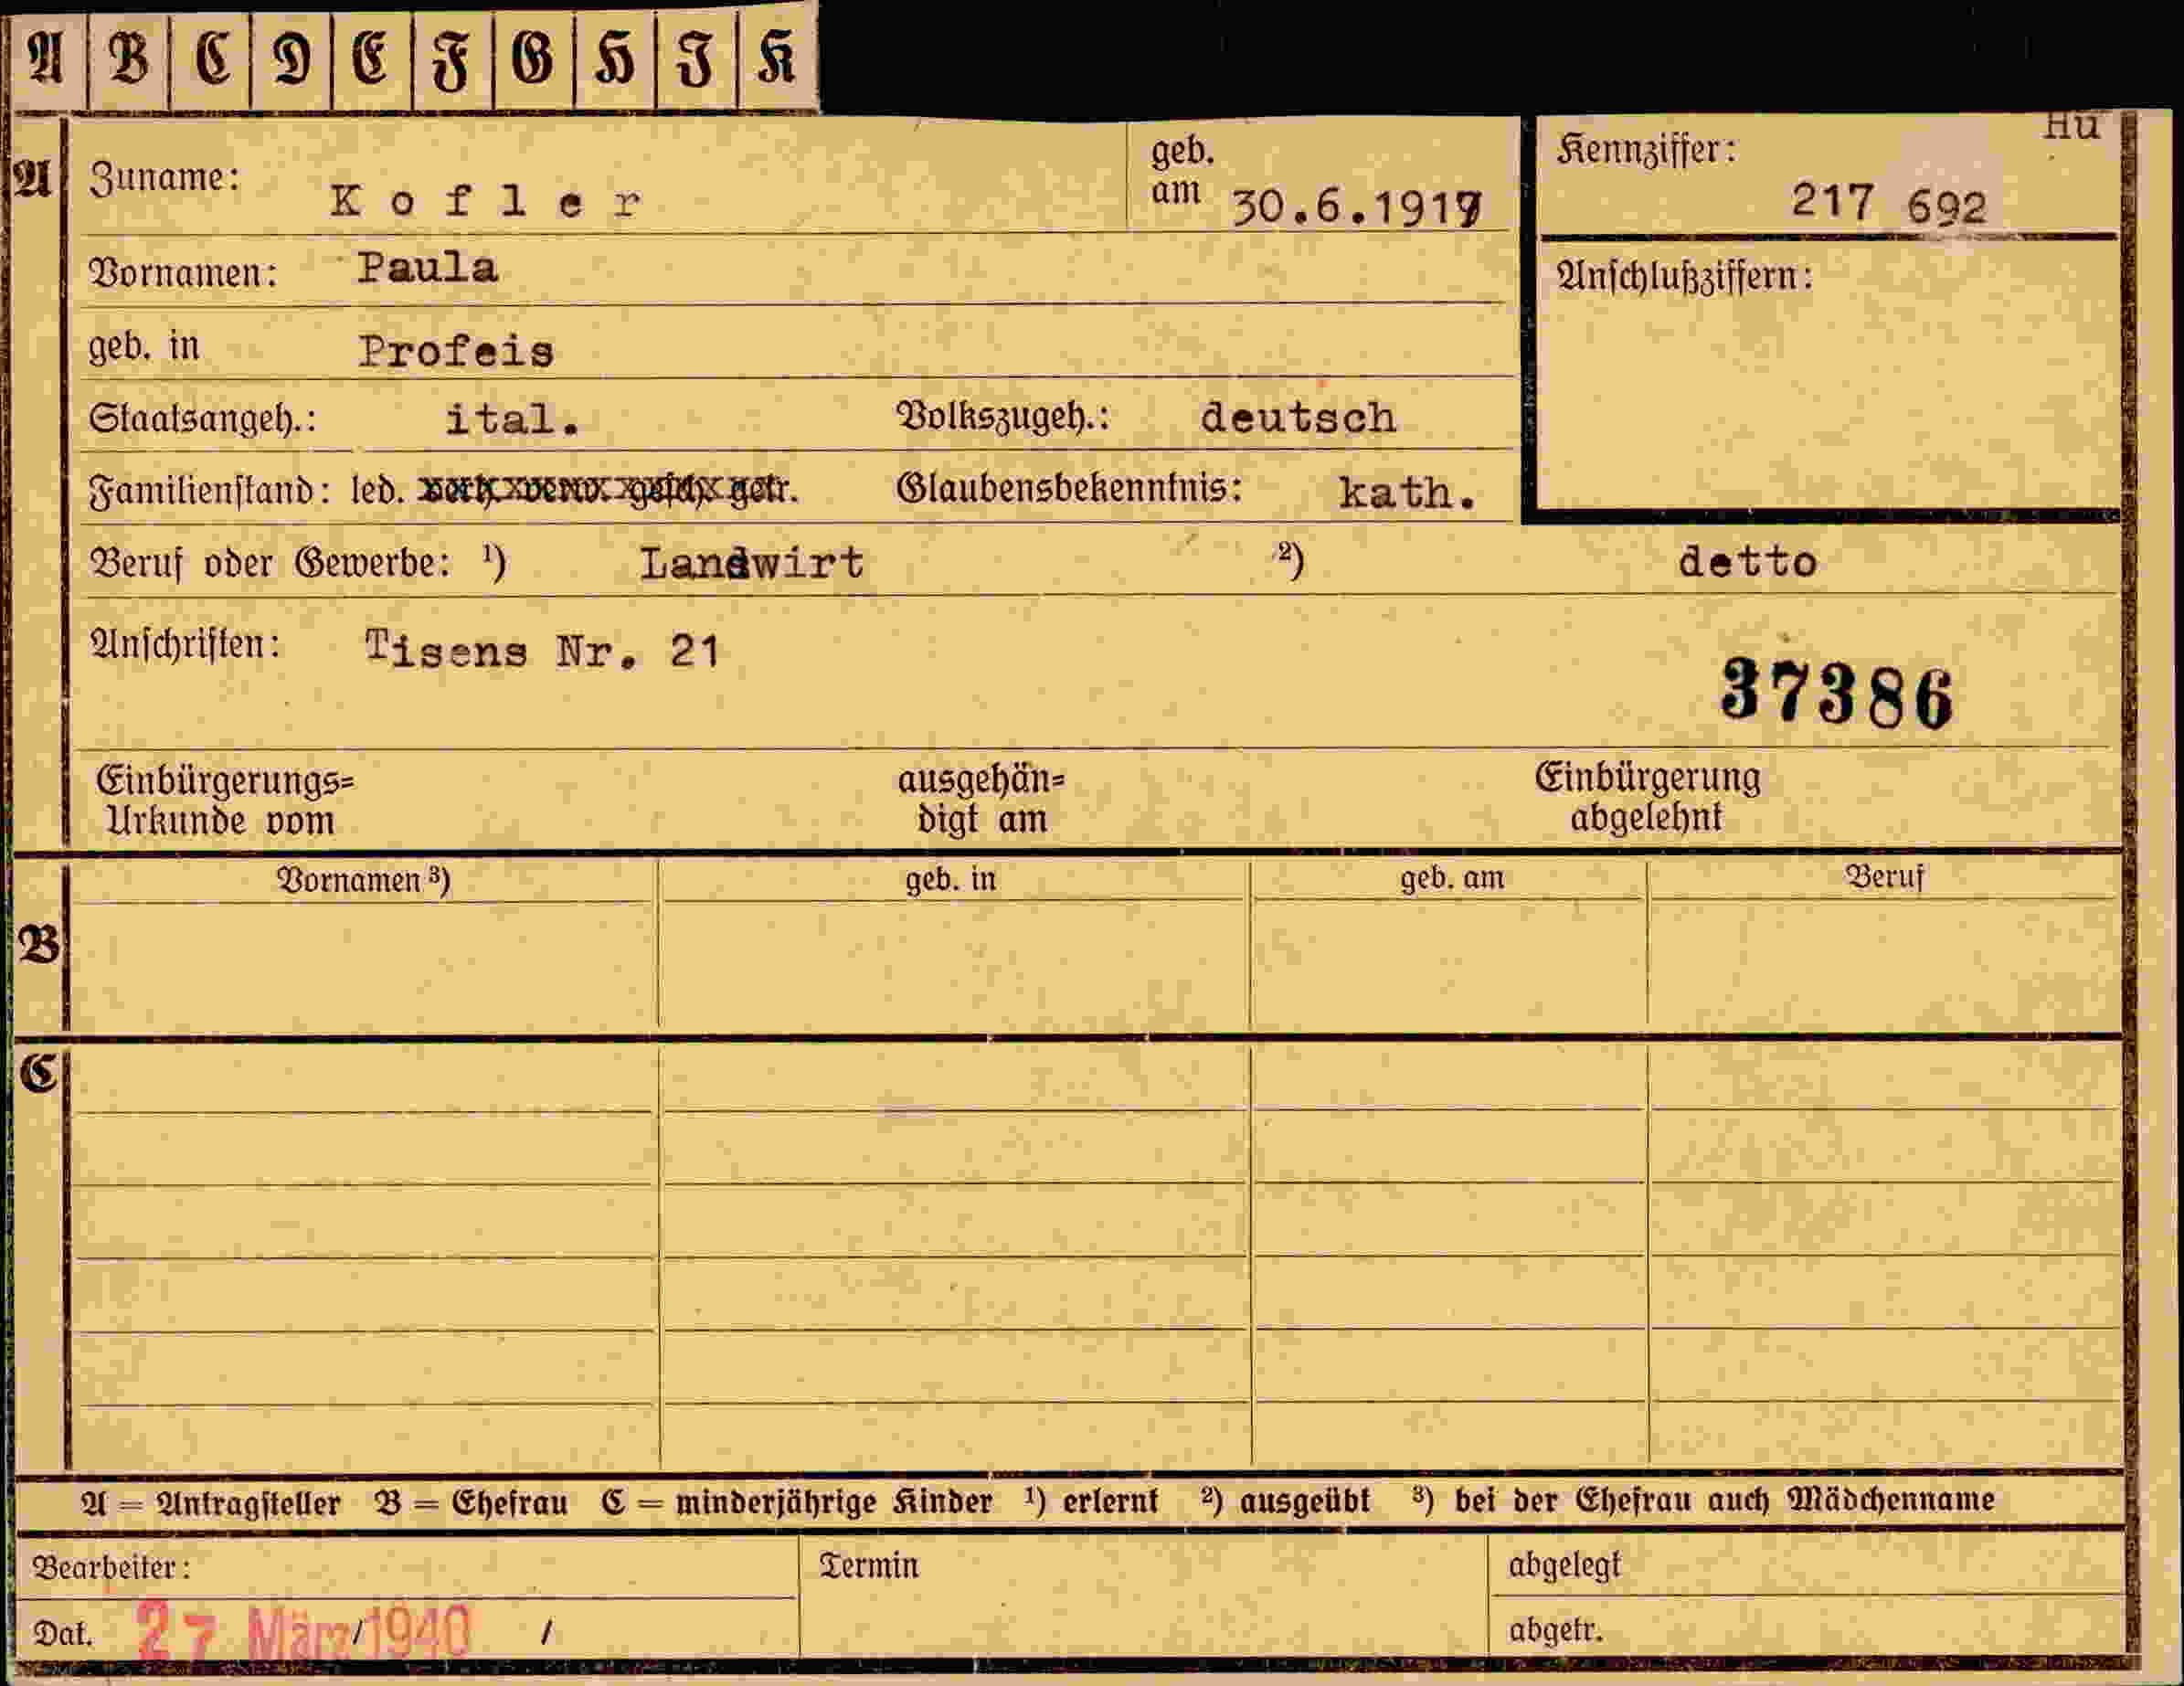 A B C D E F G H I K
Hu
A Zuname: Kofler geb. am 30.6.1917 Kennziffer: 217 692
Vornamen: Paula Anschlußziffern:
geb. in Profeis
Staatsangeh.: ital. Volkszugeh.: deutsch
Familienstand: led. verh. verw. gesch. getr. Glaubensbekenntnis: kath.
Beruf oder Gewerbe: ¹) Landwirt ²) detto
Anschriften: Tisens Nr. 21
37386
Einbürgerungs= ausgehän= Einbürgerung
Urkunde vom digt am abgelehnt
Vornamen ³) geb. in geb. am Beruf
B
C
A = Antragsteller B = Ehefrau C = minderjährige Kinder ¹) erlernt ²) ausgeübt ³) bei der Ehefrau auch Mädchenname
Bearbeiter: Termin abgelegt
Dat. 27 März 1940 / / abgetr.